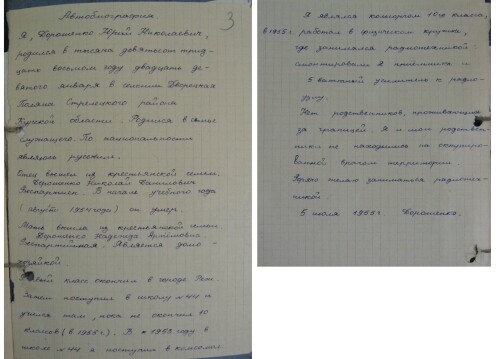 Автобиография.
3
Я, Дорошенко Юрий Николаевич,
родился в тысяча девятьсот трид-
цать восьмом году двадцать де-
вятого января в селении Дворовая
Поляна Стрелецкого района
Курской области. Родился в семье
служащего. По национальности
являюсь русским.
Отец вышел из крестьянской семьи.
Дорошенко Николай Данилович
Беспартиен. В начале учебного года
(август 1954 года) он умер.
Мать вышла из крестьянской семьи
Дорошенко Надежда
Беспартийная. Является домо-
хозяйкой
Первый класс окончил в городе
Затем поступил в школу №44 и
учился там, пока не окончил 10
классов (в 1955 г.). В 1953 году в
школе №44 я поступил в комсомол.
Я являлся комсоргом 10 класса,
в 1955 г. работал в физическом кружке,
где занимался радиотехникой
смонтировали 2 приёмника и
5 ваттный усилитель к радио-
узлу.
Нет родственников, проживающих
за границей. Я и мои родствен-
ники не находились на оккупиро-
ванной врагом территории.
желаю заниматься радиотех-
никой
5 июля 1955 г. Дорошенко.